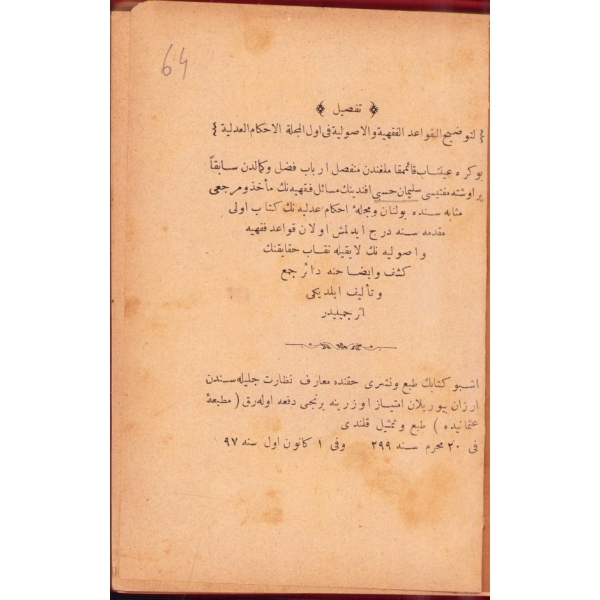 64
﴿ تفصيل ﴾
لتوضيح القواعد الفقهية والاصولية فى اول المجلة الاحكام العدلية
بو كره عينتاب قائممقاملغندن منفصل ارباب فضل وكمالدن سابقاً
پراوشته مفتيسى سليمان حسبى افندينك مسائل فقهيه نك مأخذ و مرجعى
مثابه سنده بولنان و مجلهٔ احكام عدليه نك كتاب اولى
مقدمه سنه درج ايدلمش اولان قواعد فقهيه
و اصوليه نك لايقيله نقاب حقايقنك
كشف و ايضاحنه دائر جمع
و تأليف ايلديكى
اثر جميليدر
اشبو كتابك طبع ونشرى حقنده معارف نظارت جليله سندن
ارزان بيوريلان امتياز اوزرينه برنجى دفعه اوله رق ( مطبعهٔ
عثمانيده ) طبع و تمثيل قلندى
فى ٢٠ محرم سنه ٢٩٩ وفى ١ كانون اول سنه ٩٧